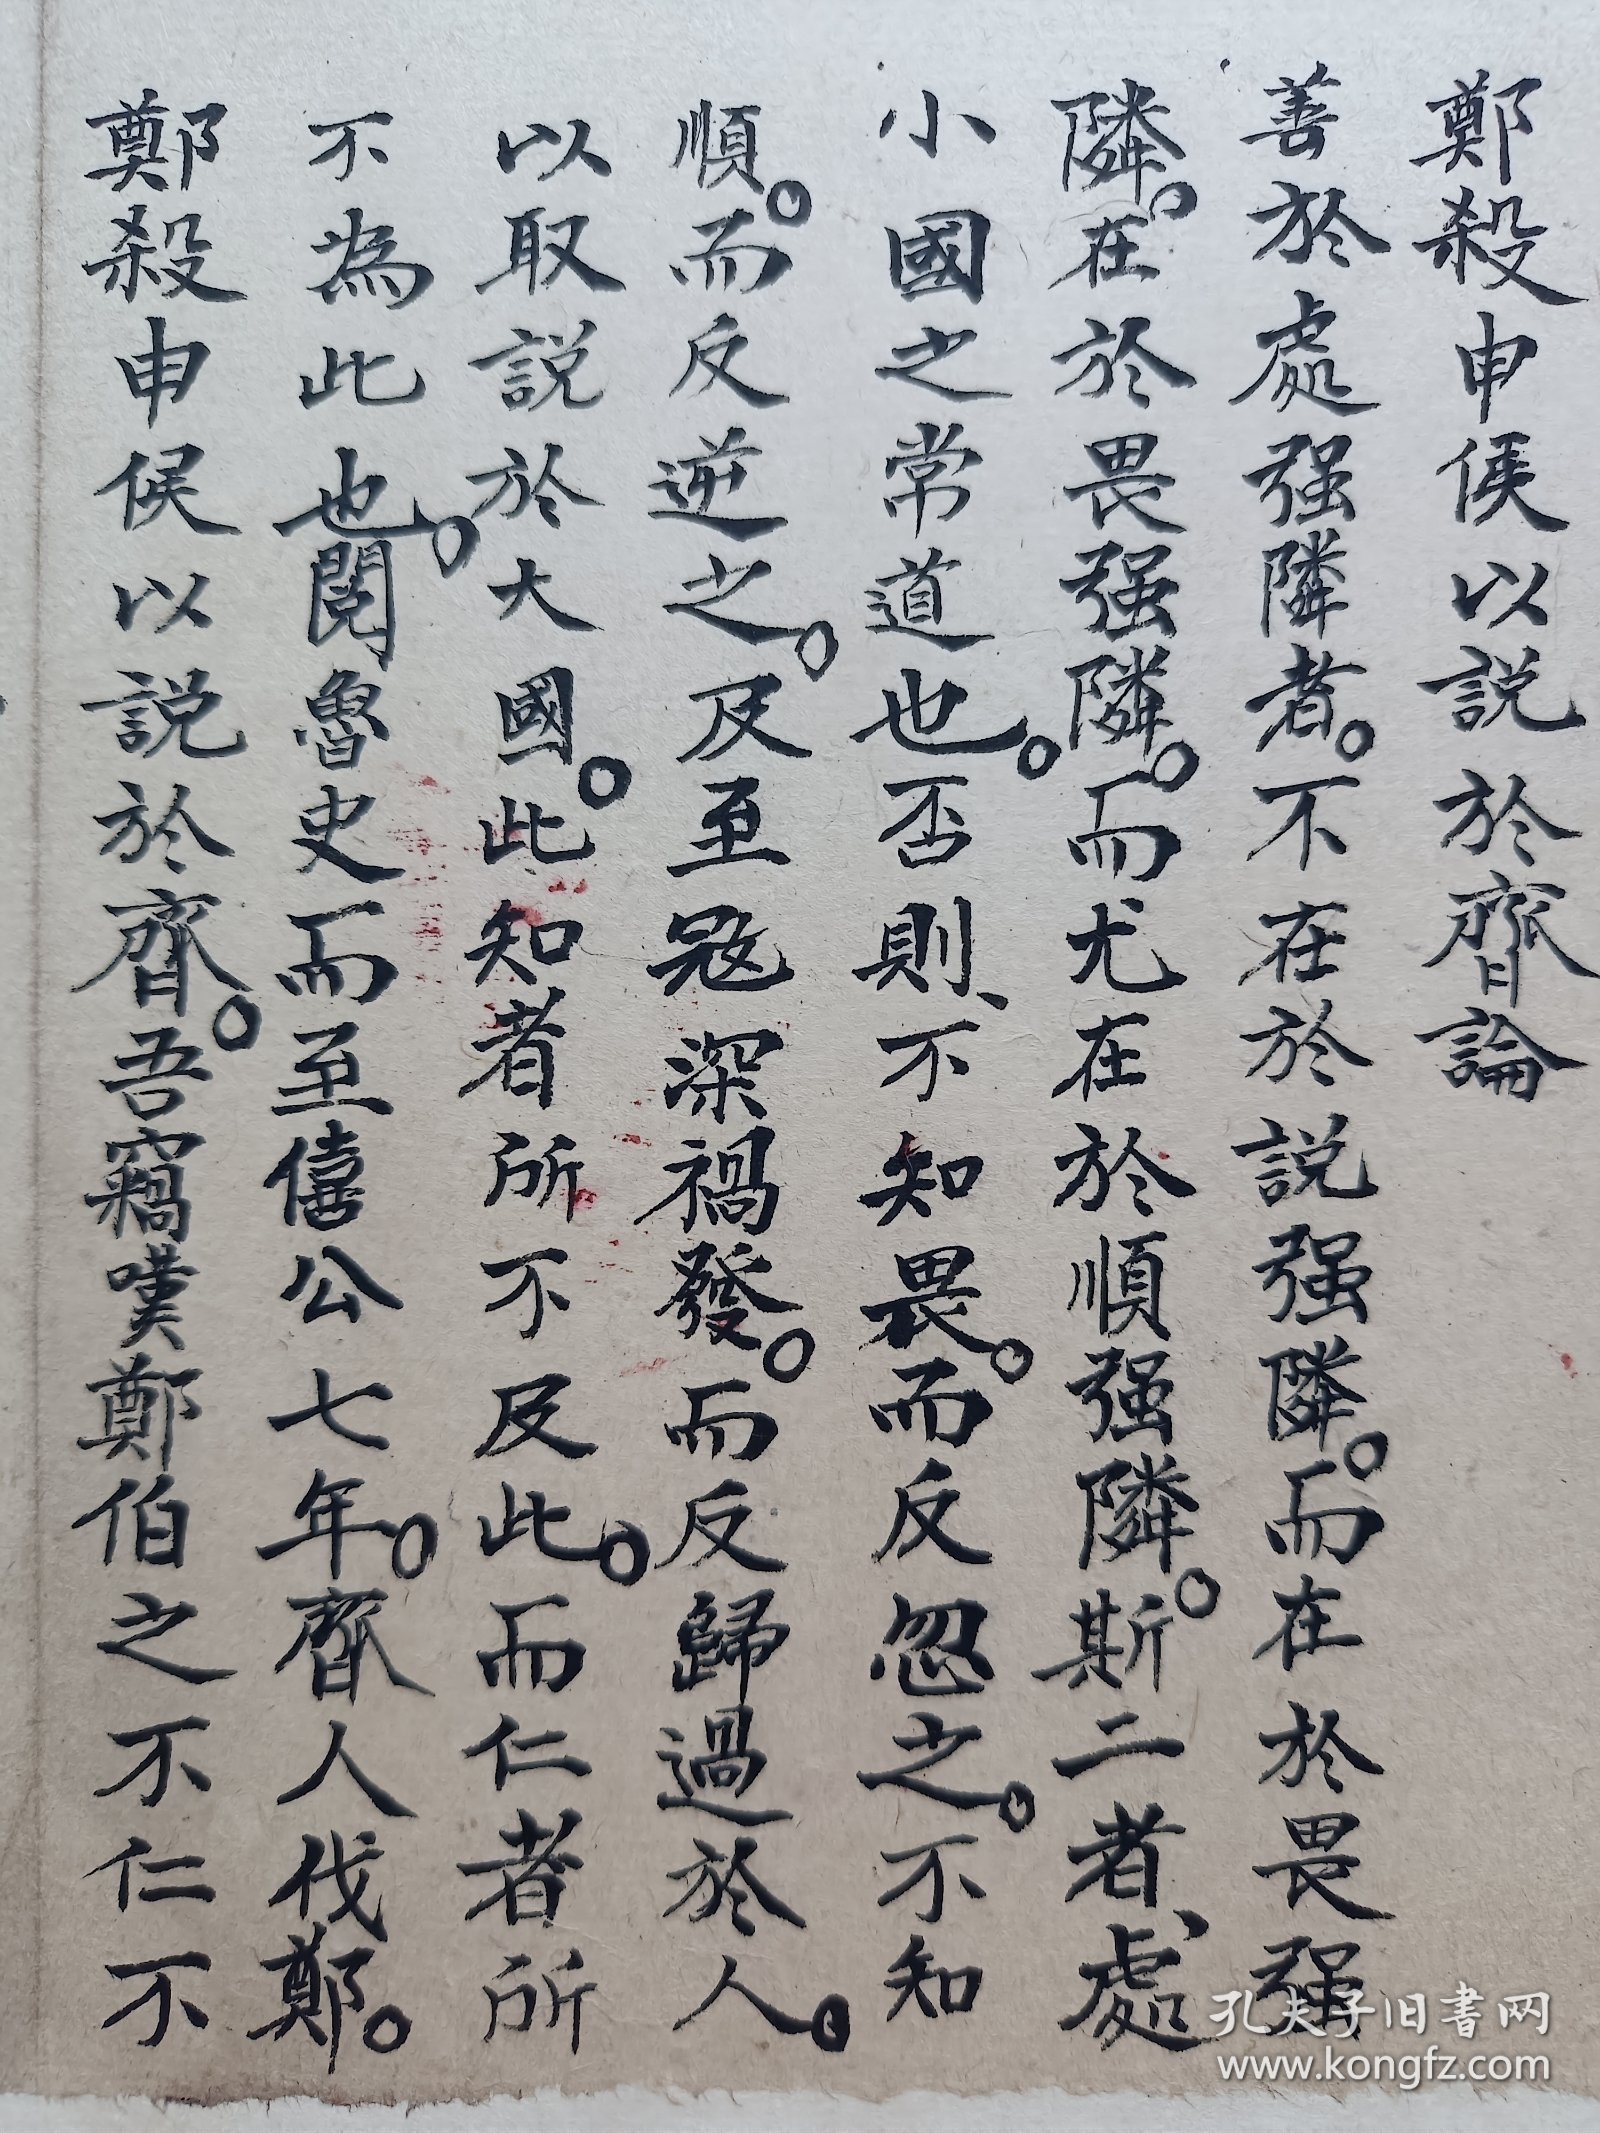 鄭殺申侯以説於齊論
善於處强隣者。不在於説强隣。而在於畏强
隣。在於畏强隣。而尤在於順强隣。斯二者、處
小國之常道也。否則、不知畏。而反忽之。不知
順。而反逆之。及至寇深禍發。而反歸過於人。
以取説於大國。此知者所不及此。而仁者所
不為此也。閱魯史而至僖公七年。齊人伐鄭。
鄭殺申候以説於齊。吾竊嘆鄭伯之不仁不
孔夫子旧書网
www.kongfz.com